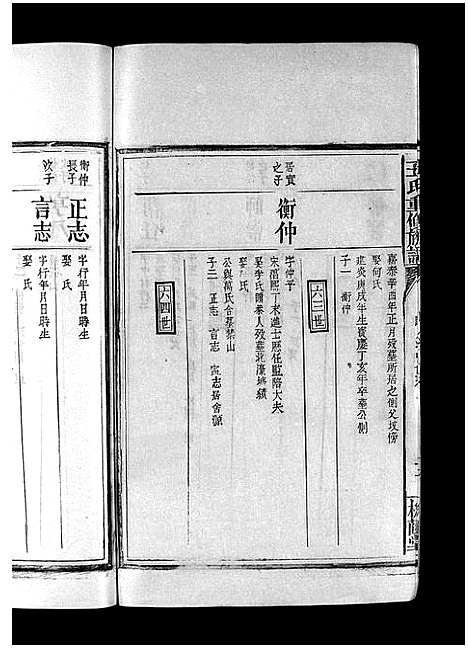 氏重修族譜
嘉泰辛酉年正月歿墓所居之側父墳傍
娶何氏
建炎庚戌年生寶慶丁亥年卒墓公側
子一 衡仲
六三世
居實之子
衡仲
字仲子
宋淳熙丁未進士歷任監陪大夫
娶李氏國泰人歿墓北濠塘嶺
娶萬氏合墓禁山
子三 正志 言志 寅志居舍源
六四世
衡仲長子
正志
字行年月日時生
娶 氏
次子
言志
字行年月日時生
娶 氏